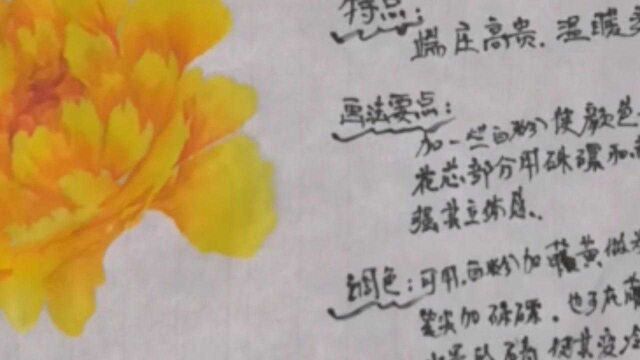 特点：
端庄高贵.温暖
画法要点：
加一些白粉使颜色
花芯部分用硃磦和
强其立体感.
调色：可用.白粉加藤黄做
笔尖加硃磦.也可底